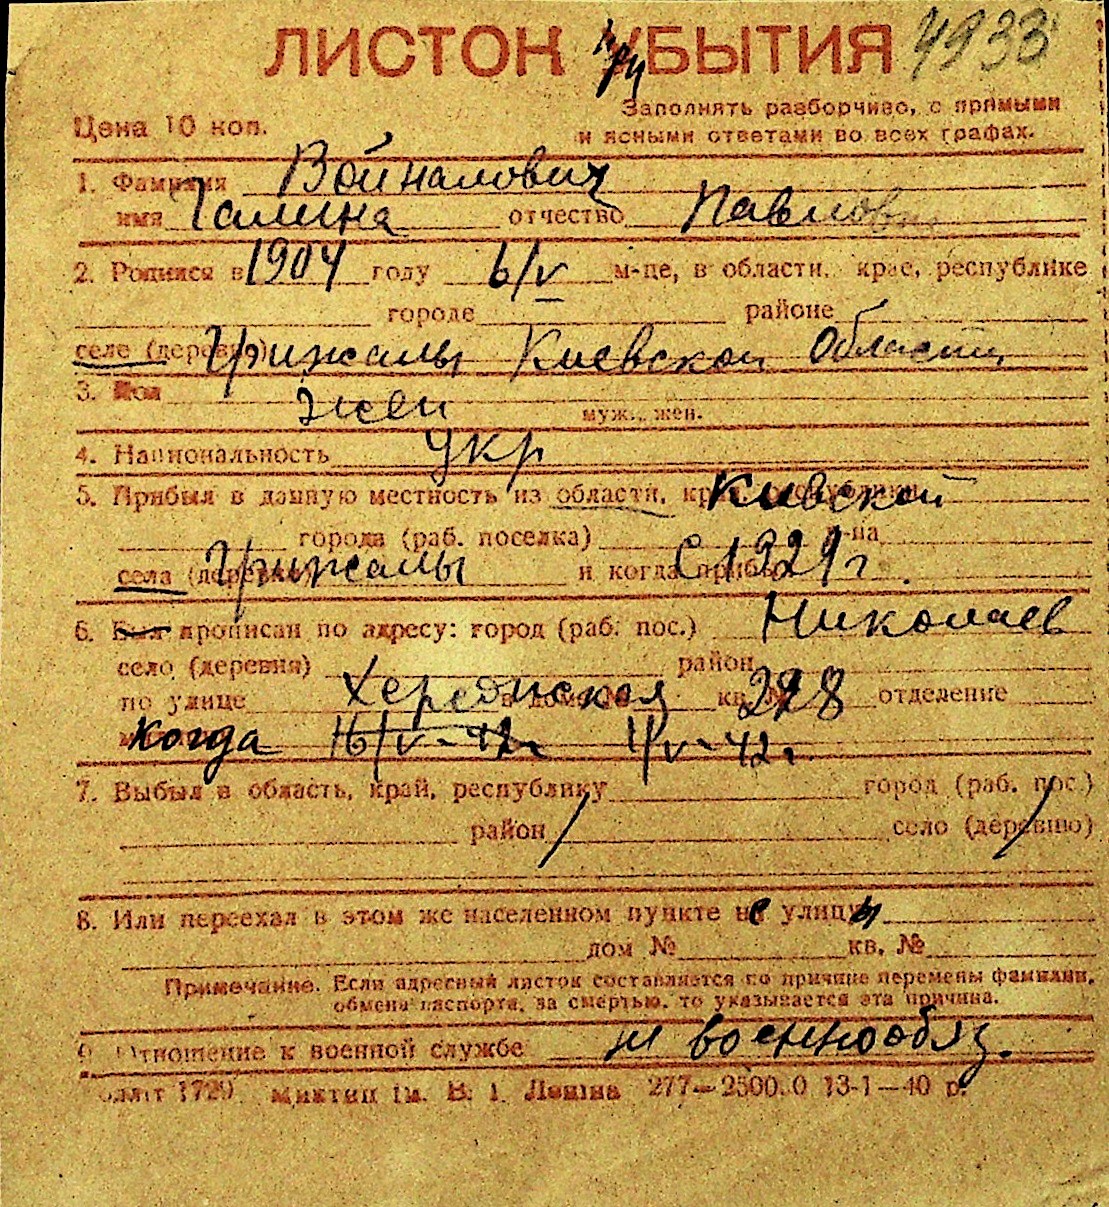 ЛИСТОК УБЫТИЯ 4933
при
Цена 10 коп.
Заполнять разборчиво, с прямыми
и ясными ответами во всех графах.
1. Фамилия Войналович
имя Галина отчество Павловна
2. Родился в 1904 году 6/V м-це, в области, крае, республике
городе районе
селе (деревне) Грижалы Киевской Области
3. Пол жен муж., жен.
4. Национальность укр
5. Прибыл в данную местность из области, края, республики Киевской
города (раб. поселка) р-на
села (деревни) Грижалы и когда прибыл С 1929 г.
6. Был прописан по адресу: город (раб. пос.) Николаев
село (деревня) район
по улице Херсонская в доме № кв. № 298 отделение
Когда 16/V-42г 11/V-42г.
7. Выбыл в область, край, республику город (раб. пос.)
район село (деревню)
8. Или переехал в этом же населенном пункте с улицы
дом № кв. №
Примечание. Если адресный листок составляется по причине перемены фамилии,
обмена паспорта, за смертью, то указывается эта причина.
9. Отношение к военной службе не военнообяз.
1729 В. І. Леніна 277—2500.0 13-1—40 р.